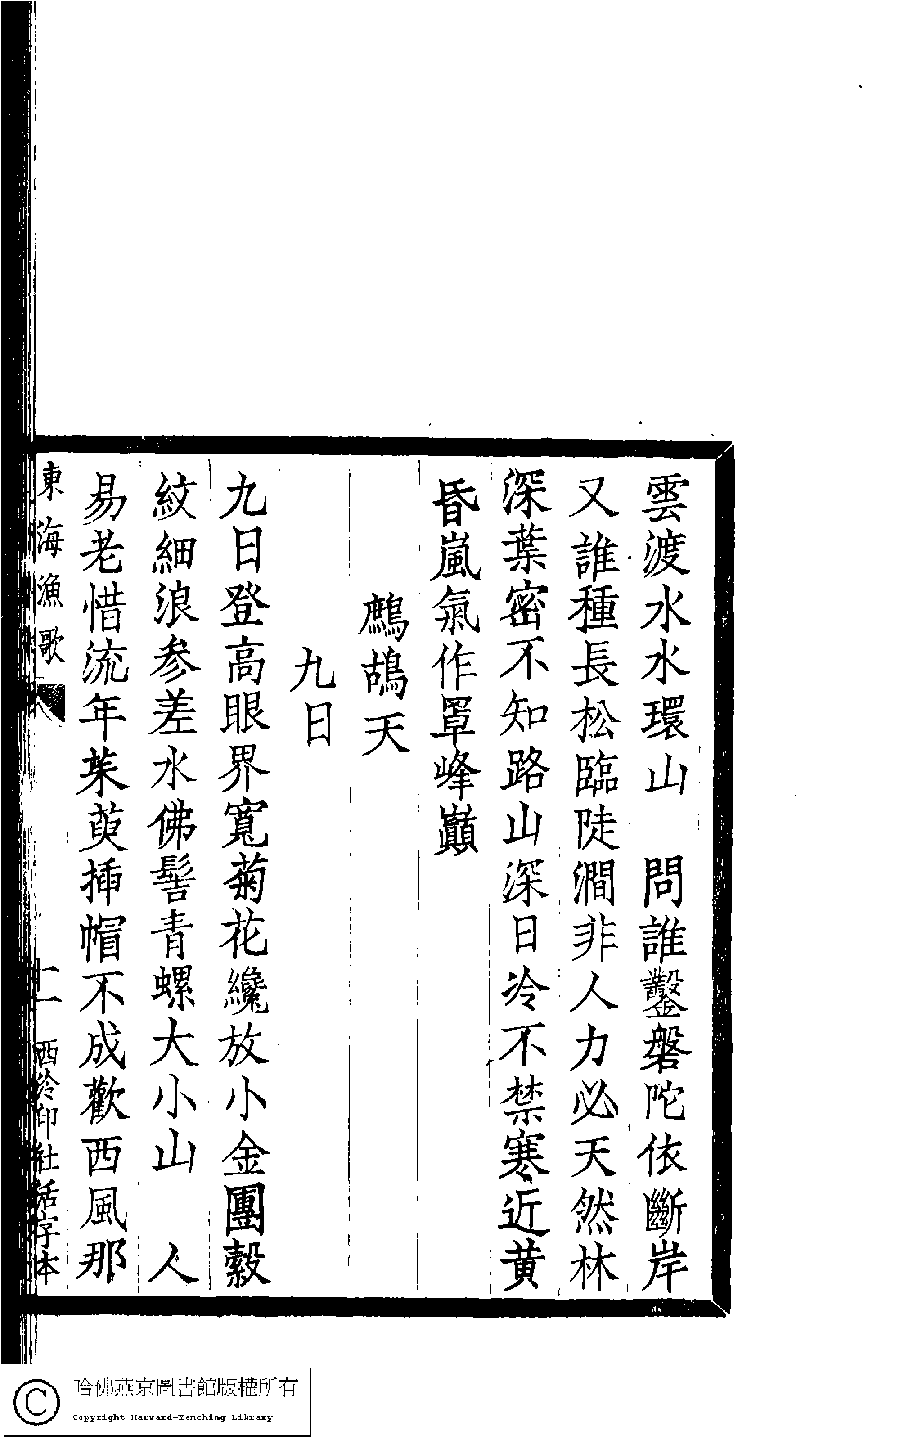 雲渡水水環山　問誰鑿磐陀依斷岸
又誰種長松臨陡澗非人力必天然林
深葉密不知路山深日冷不禁寒近黃
昏嵐氣作罩峰巔
鷓鴣天
九日
九日登高眼界寬菊花纔放小金團縠
紋細浪參差水佛髻青螺大小山　人
易老惜流年茱萸插帽不成歡西風那
東海漁歌　十一　西泠印社活字本
哈佛燕京圖書館版權所有
Copyright Harvard-Yenching Library